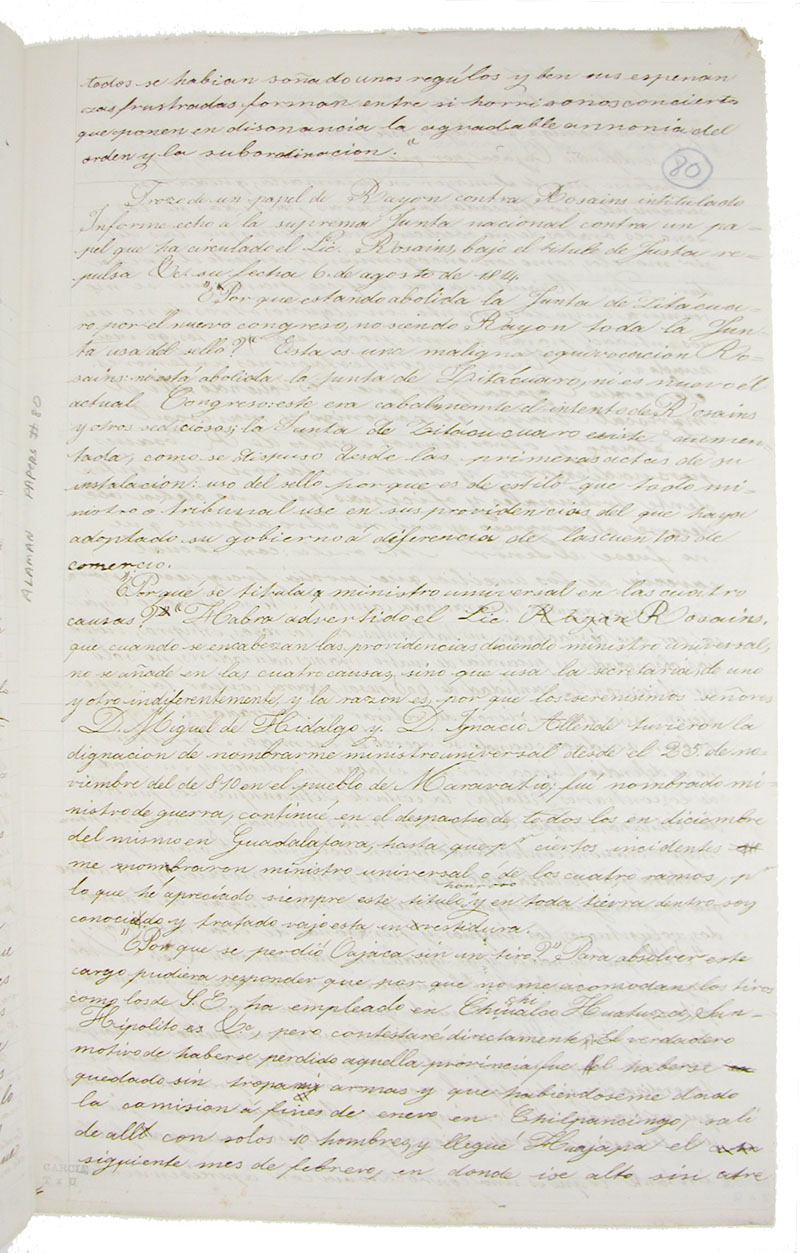 todos se habian soñado unos regúlos y ben sus esperan
zas frustradas forman entre si horrisonos concierto
que ponen en disonancia la agradable armonia del
orden y la subordinacion."
80
Trozo de un papel de Rayon contra Rosains intitulado
Informe echo a la suprema Junta nacional contra un pa-
pel que ha circulado el Lic. Rosains, bajo el titulo de Justa re-
pulsa &c. su fecha 6 de agosto de 1814.
"¿Por que estando abolida la Junta de Zitácua-
ro por el nuevo congreso, no siendo Rayon toda la Jun-
ta usa del sello?" Esta es una maligna equivocacion Ro-
sains: ni está abolida la junta de Zitácuaro, ni es nuevo él
actual Congreso: este era cabalmente el intento de Rosains
y otros sediciosos; la Junta de Zitácucuaro existe aumen-
tada, como se dispuso desde las primeras actas de su
instalacion: uso del sello por que es de estilo que todo mi-
nistro o tribunal use en sus providencias del que haya
adoptado su gobierno á diferencia de las cuentas de
comercio.
"Porqué se titula ministro universal en las cuatro
causas?" "Habra advertido el Lic. Rosains,
que cuando se encabezan las providencias diciendo ministro universal,
no se añade en las cuatro causas, sino que usa la secretaria, de uno
y otro indiferentemente, y la razon es, por que los serenisimos señores
D. Miguel de Hidalgo y D. Ignacio Allende tuvieron la
dignacion de nombrarme ministro universal desde el 25 de no-
viembre del de 810 en el pueblo de Maravatio; fui nombrado mi-
nistro de guerra, continué en el despacho de todos los en diciembre
del mismo en Guadalajara, hasta que pr. ciertos incidentes
me nombraron ministro universal o de los cuatro ramos, pr.
lo que hé apreciado siempre este titulo honroso y en toda tierra dentro soy
conocido y tratado vajo esta investidura.
"¿Por que se perdió Oajaca sin un tiro?" Para absolver este
cargo pudiera responder que por que no me acomodan los tiros
como los de S. E. ha empleado en Huatusco, San-
Hipólito &c, pero contestaré directamente. El verdadero
motivo de haberse perdido aquella provincia fue el haberse
quedado sin tropa ni armas y que habiendoseme dado
la comision a fines de enero en Chilpancingo, sali
de allí con solos 10 hombres, y llegue Huajapa el
siguiente mes de febrero, en donde ise alto sin atre
ALAMAN PAPERS # 80